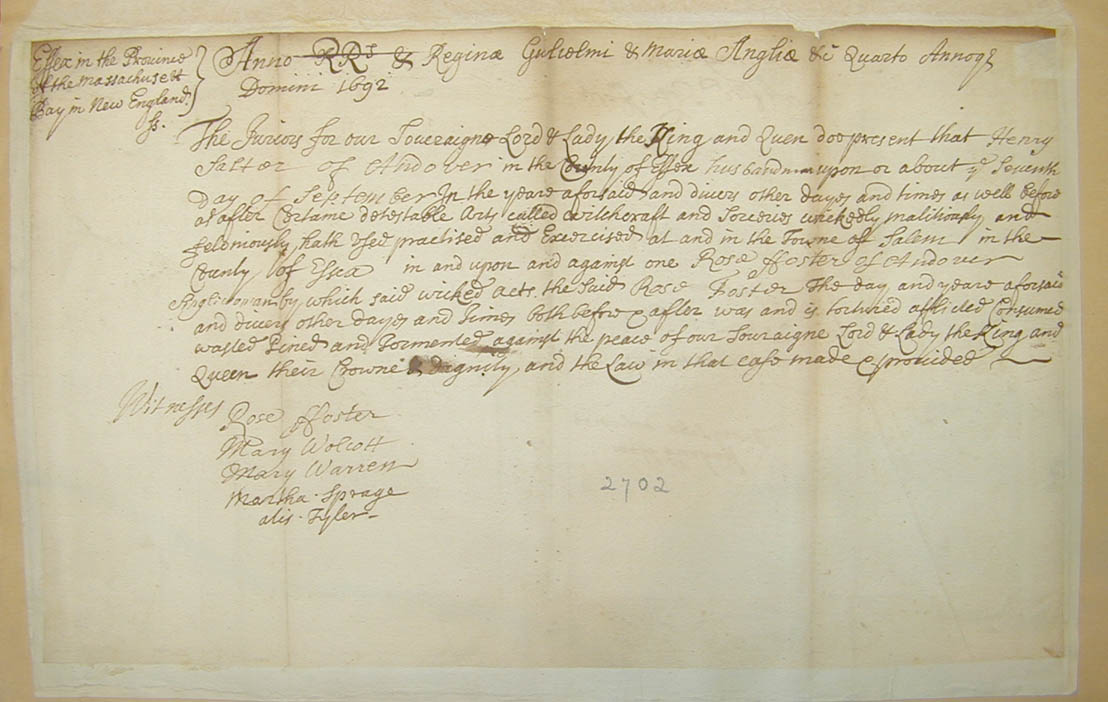 Essex in the Province
Of the Massachusett
Bay in New England
ss.
Anno RRs & Reginæ Gulielmi & Mariæ Angliæ &c Quarto Annoq
Domini 1692
The Juriors for our Soveraigne Lord & Lady the King and Quen doe present that Henry
Salter of Andover in the County of Essex husbandman upon or about ye Seventh
Day of September In the yeare aforsaid and divers other dayes and times as well before
as after Certaine detestable Arts called witchcraft and Sorceries wickedly malitiously and
felloniously hath Used practised and Exercised at and in the Towne of Salem in the
County of Essex in and upon and against one Rose ffoster of Andover
Singlewoman by which said wicked Acts the said Rose Foster The day and yeare aforsaid
and divers other dayes and times both before & after was and is tortured afflicted Consumed
wasted Pined and Tormented against the peace of our Souraigne Lord & Lady the King and
Queen their Crowne & dignity and the Law in that case made & provided
Witnesses
Rose ffoster
Mary Wolcott
Mary Warren
Martha Sprage
alis Tyler
2702